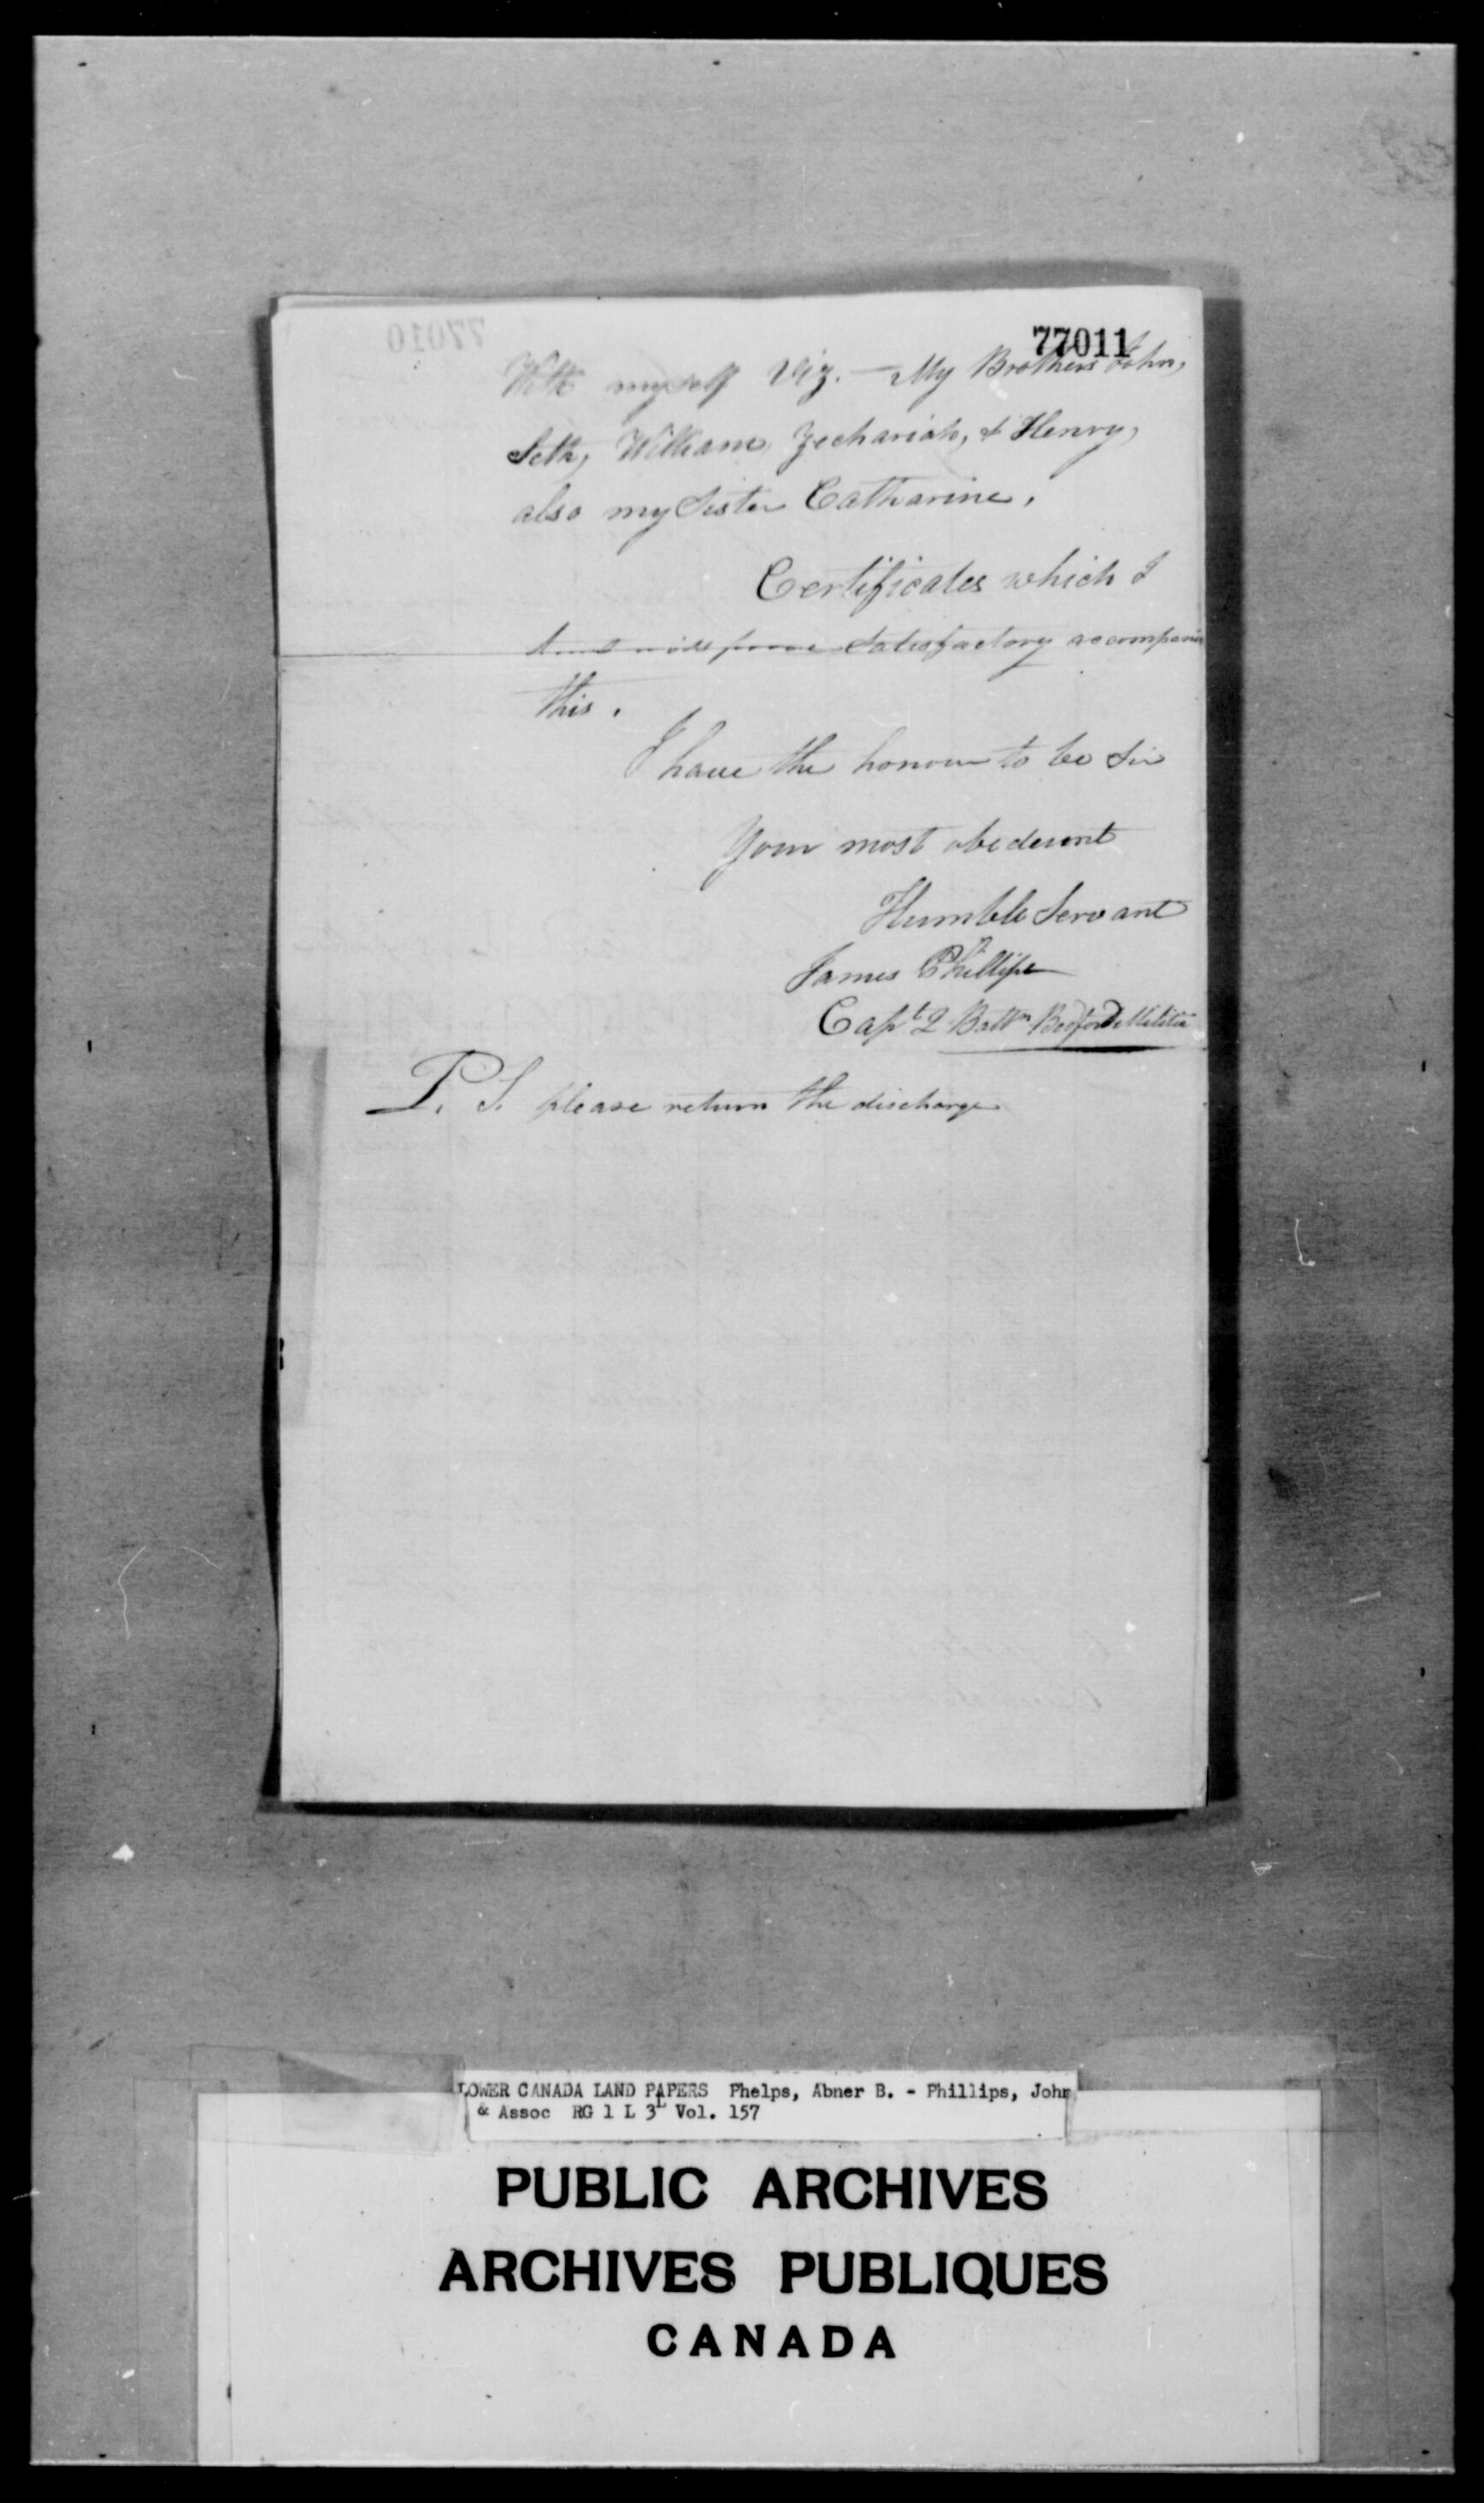 77010
77011
With myself Viz. — My Brothers John,
Seth, William, Zechariah, & Henry,
also my Sister Catharine.
Certificates which I
trust will prove Satisfactory accompanies
this.
I have the honour to be Sir
Your most obedient
Humble Servant
James Phillips
Capt 2 Battn Bedford Militia
P. S. please return the discharge
LOWER CANADA LAND PAPERS Phelps, Abner B. - Phillips, John
& Assoc RG 1 L 3L Vol. 157
PUBLIC ARCHIVES
ARCHIVES PUBLIQUES
CANADA